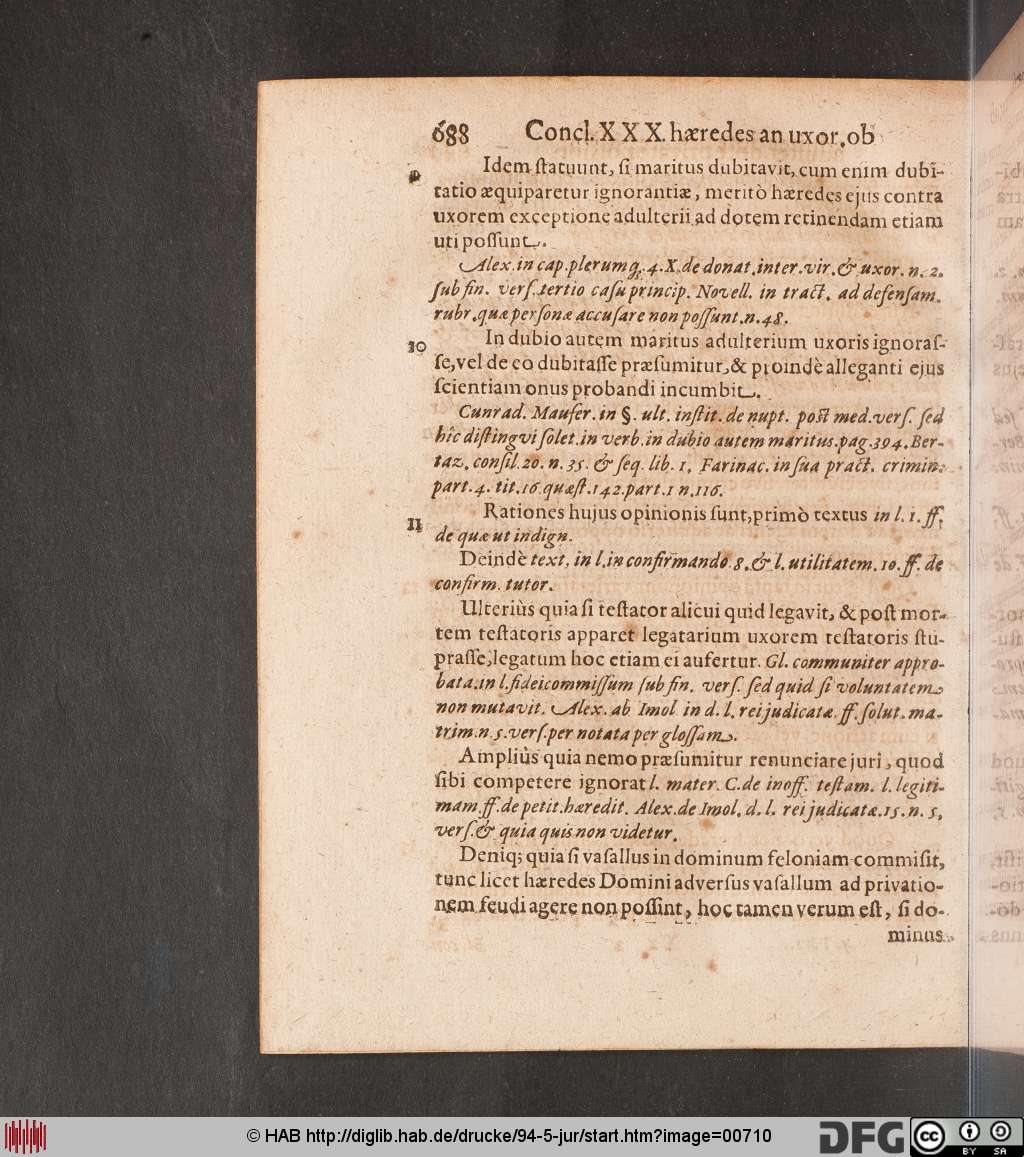 688 Concl. XXX. hæredes an uxor. ob
9 Idem ſtatuunt, ſi maritus dubitavit, cum enim dubi-
tatio æquiparetur ignorantiæ, meritò hæredes ejus contra
uxorem exceptione adulterii ad dotem retinendam etiam
uti poſſunt.
Alex. in cap. plerumq; 4. X. de donat. inter. vir. & uxor. n. 2.
ſub fin. verſ. tertio caſu princip. Novell. in tract. ad defenſam.
rubr. quæ perſonæ accuſare non poſſunt. n. 48.
10 In dubio autem maritus adulterium uxoris ignoraſ-
ſe, vel de eo dubitaſſe præſumitur, & proindè alleganti ejus
ſcientiam onus probandi incumbit.
Cunrad. Mauſer. in §. ult. inſtit. de nupt. poſt med. verſ. ſed
hîc diſtingvi ſolet. in verb. in dubio autem maritus. pag. 394. Ber-
taz. conſil. 20. n. 35. & ſeq. lib. 1. Farinac. in ſua pract. crimin.
part. 4. tit. 16 quæſt. 142. part. 1 n. 116.
11 Rationes hujus opinionis ſunt, primò textus in l. 1. ff.
de quæ ut indign.
Deindè text. in l. in confirmando 8. & l. utilitatem. 10. ff. de
confirm. tutor.
Ulteriùs quia ſi teſtator alicui quid legavit, & poſt mor-
tem teſtatoris apparet legatarium uxorem teſtatoris ſtu-
praſſe, legatum hoc etiam ei aufertur. Gl. communiter appro-
bata. in l. fideicommiſſum ſub fin. verſ. ſed quid ſi voluntatem
non mutavit. Alex. ab Imol. in d. l. rei judicatæ. ff. ſolut. ma-
trim. n. 5. verſ. per notata per gloſſam.
Ampliùs quia nemo præſumitur renunciare juri, quod
ſibi competere ignorat l. mater. C. de inoff. teſtam. l. legiti-
mam. ff. de petit. hæredit. Alex. de Imol. d. l. rei judicatæ. 15. n. 5.
verſ. & quia quis non videtur.
Deniq; quia ſi vaſallus in dominum feloniam commiſit,
tunc licet hæredes Domini adverſus vaſallum ad privatio-
nem feudi agere non poſſint, hoc tamen verum eſt, ſi do-
minus
© HAB http://diglib.hab.de/drucke/94-5-jur/start.htm?image=00710
DFG
cc BY SA